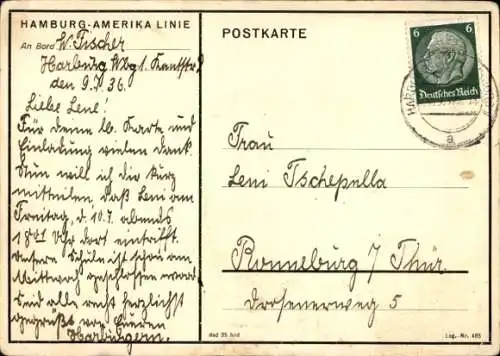 HAMBURG-AMERIKA LINIE
An Bord W. Fischer
Harburg Wbg 1. Kantstr.
den 9.7.36.
Liebe Leni!
Für Deine lb. Karte und
Einladung vielen Dank.
Nun will ich dir kurz
mitteilen, daß Leni am
Freitag, d. 10.7. abends
Uhr dort eintrifft.
Unsere Schule ist schon am
Mittwoch geschlossen word.
Seid alle recht herzlichst
gegrüßt von Eueren
Harburgern.
POSTKARTE
6 6
Deutsches Reich
a
Frau
Leni Tschepella
Ronneburg / Thür.
Drosenerweg 5
Log.-Nr. 485